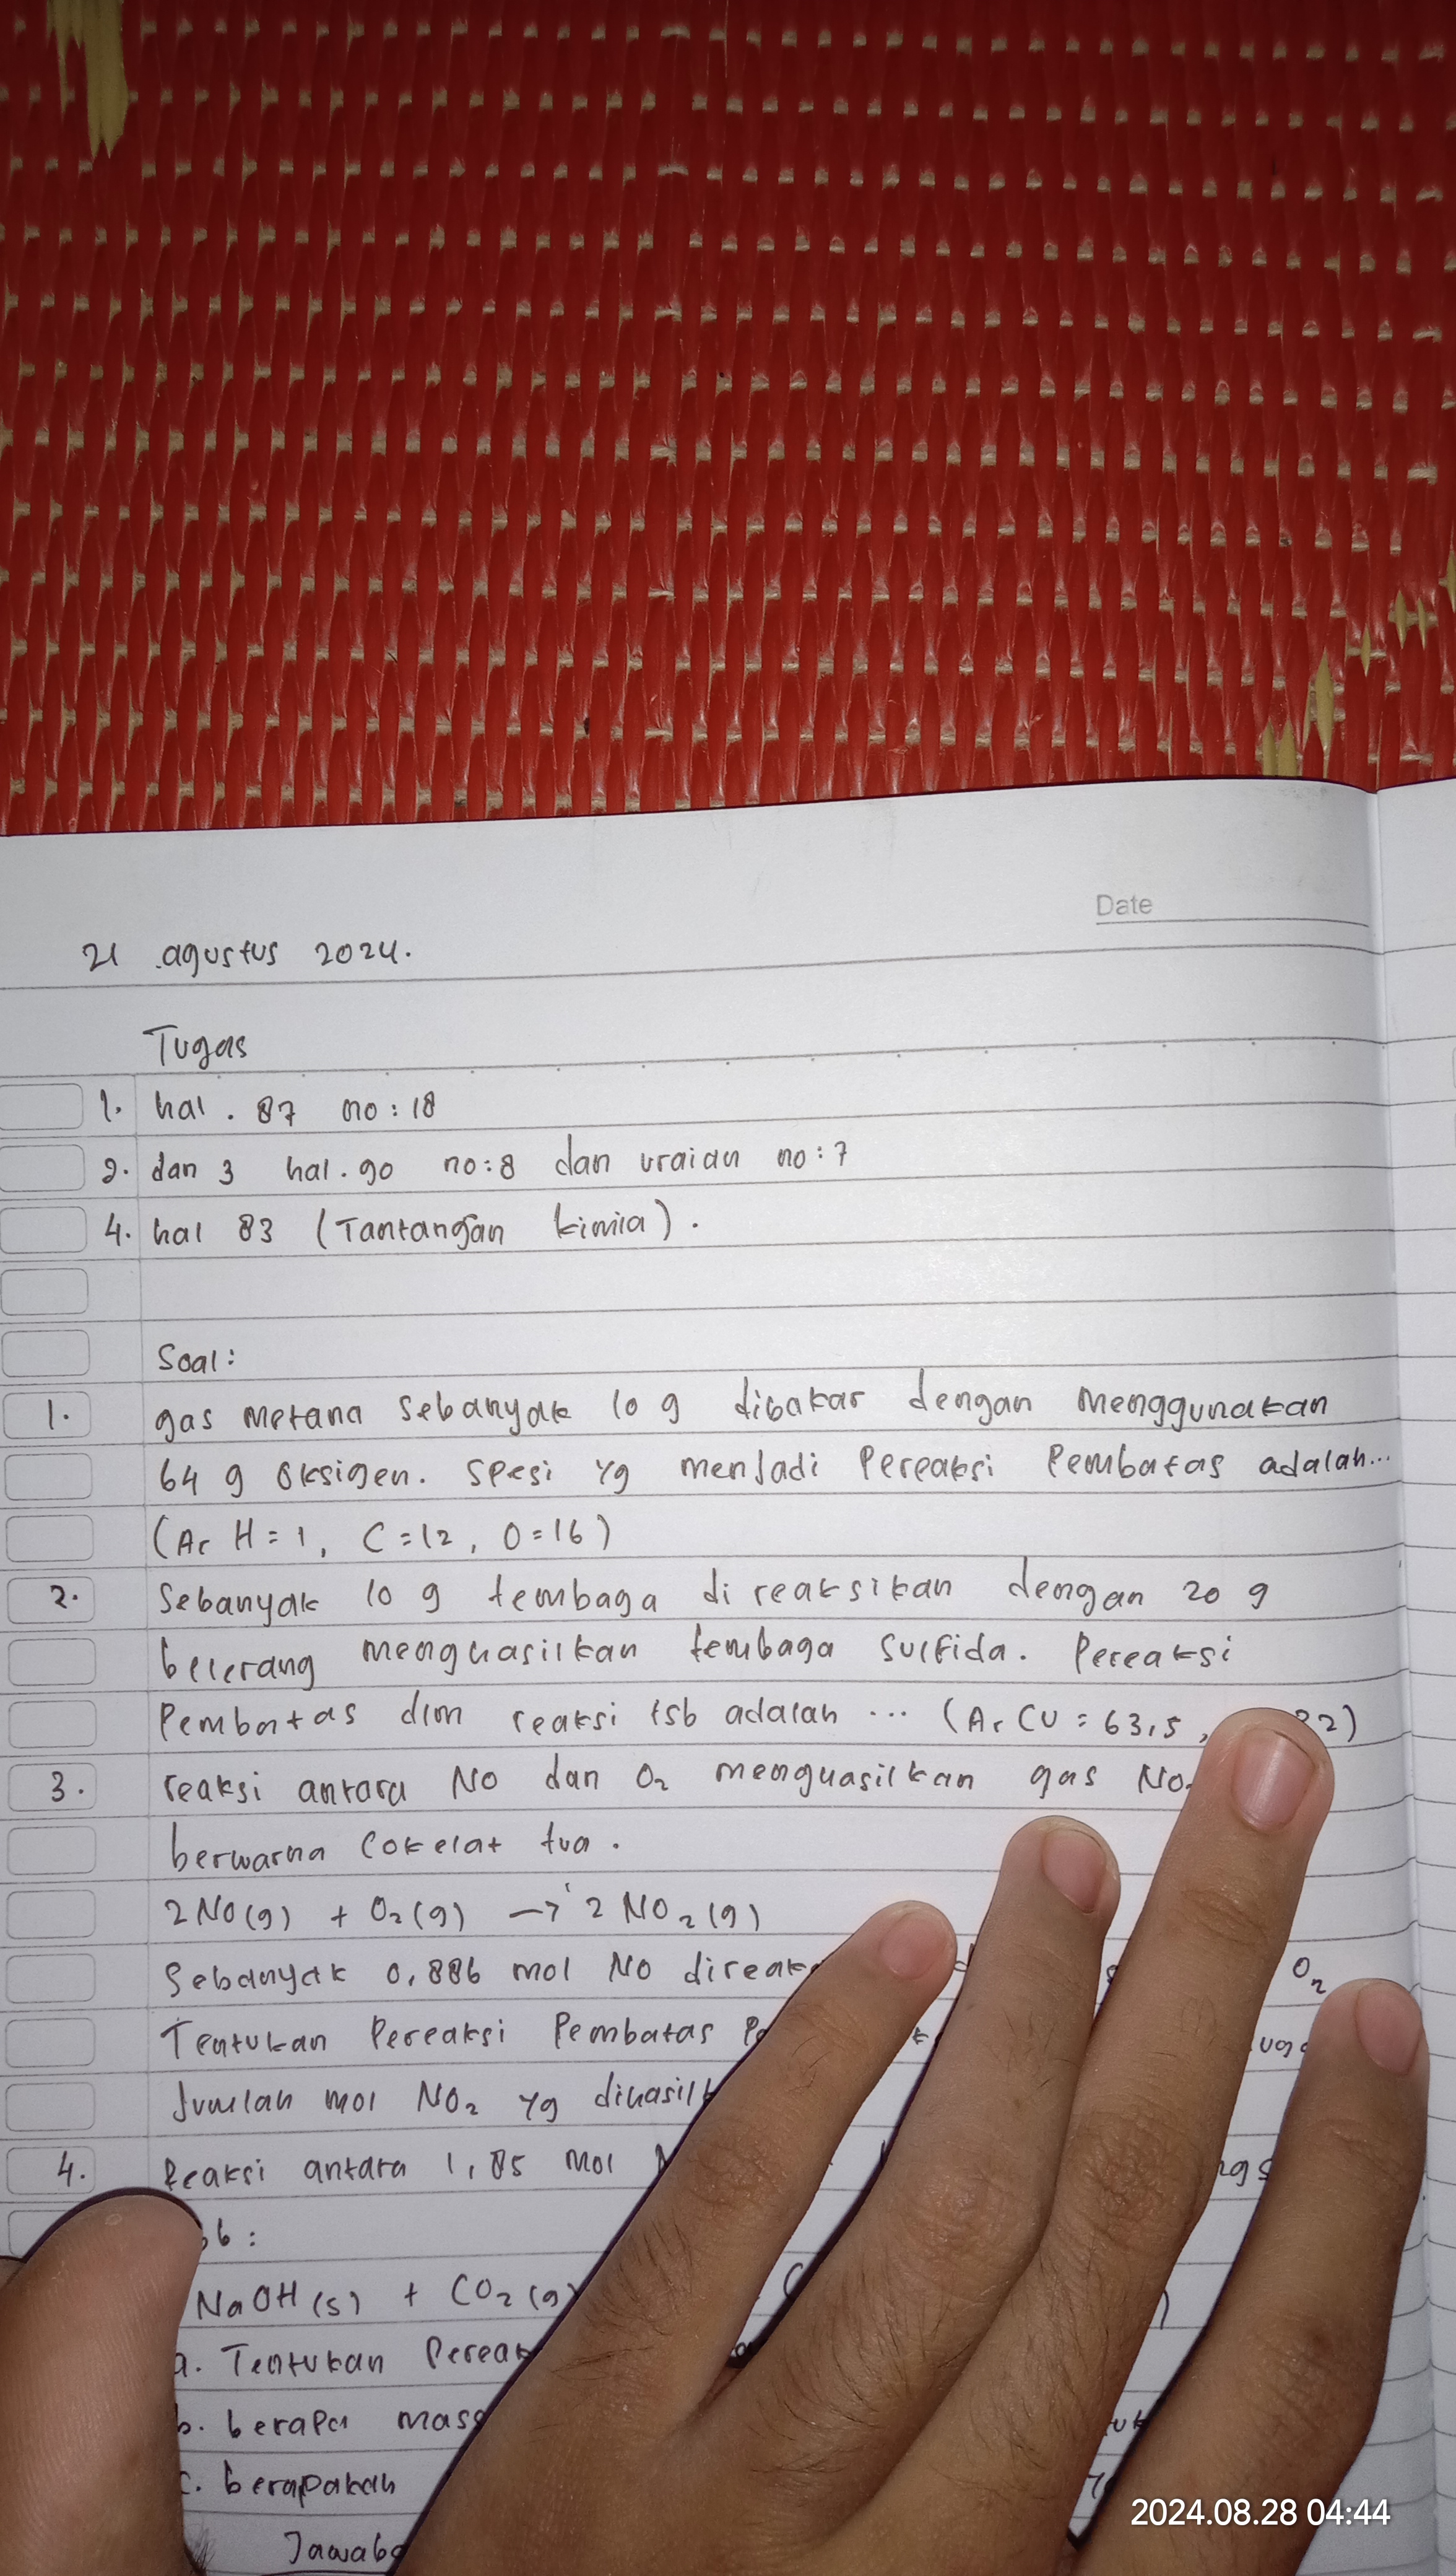 Date
21 agustus 2024.
Tugas
1. hal. 87 no: 18
2. dan 3 hal. 90 no: 8 dan uraian no: 7
4. hal 83 (Tantangan kimia).
Soal:
1. gas metana sebanyak 10 g dibakar dengan menggunakan
64 g oksigen. spesi yg menjadi Pereaksi Pembatas adalah...
(Ar H = 1, C = 12, O = 16)
2. Sebanyak 10 g tembaga direaksikan dengan 20 g
belerang menghasilkan tembaga sulfida. Pereaksi
Pembatas dlm reaksi tsb adalah ... (Ar Cu = 63,5,
3. reaksi antara NO dan O2 menghasilkan gas
berwarna cokelat tua.
2 NO(g) + O2(g) → 2 NO2(g)
Sebanyak 0,886 mol NO O2
Tentukan Pereaksi Pembatas
Jumlah mol NO2 yg
4. Reaksi antara 1,85 mol
NaOH(s) + CO2(g)
a. Tentukan
b. berapa
c. berapakah
2024.08.28 04:44